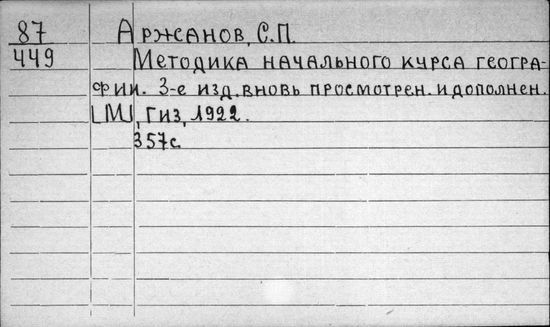 87 Аржанов, С.П.
449 Методика начального курса геогра-
фии. 3-е изд. вновь просмотрен. и дополнен.
[М], Гиз, 1922.
357с.